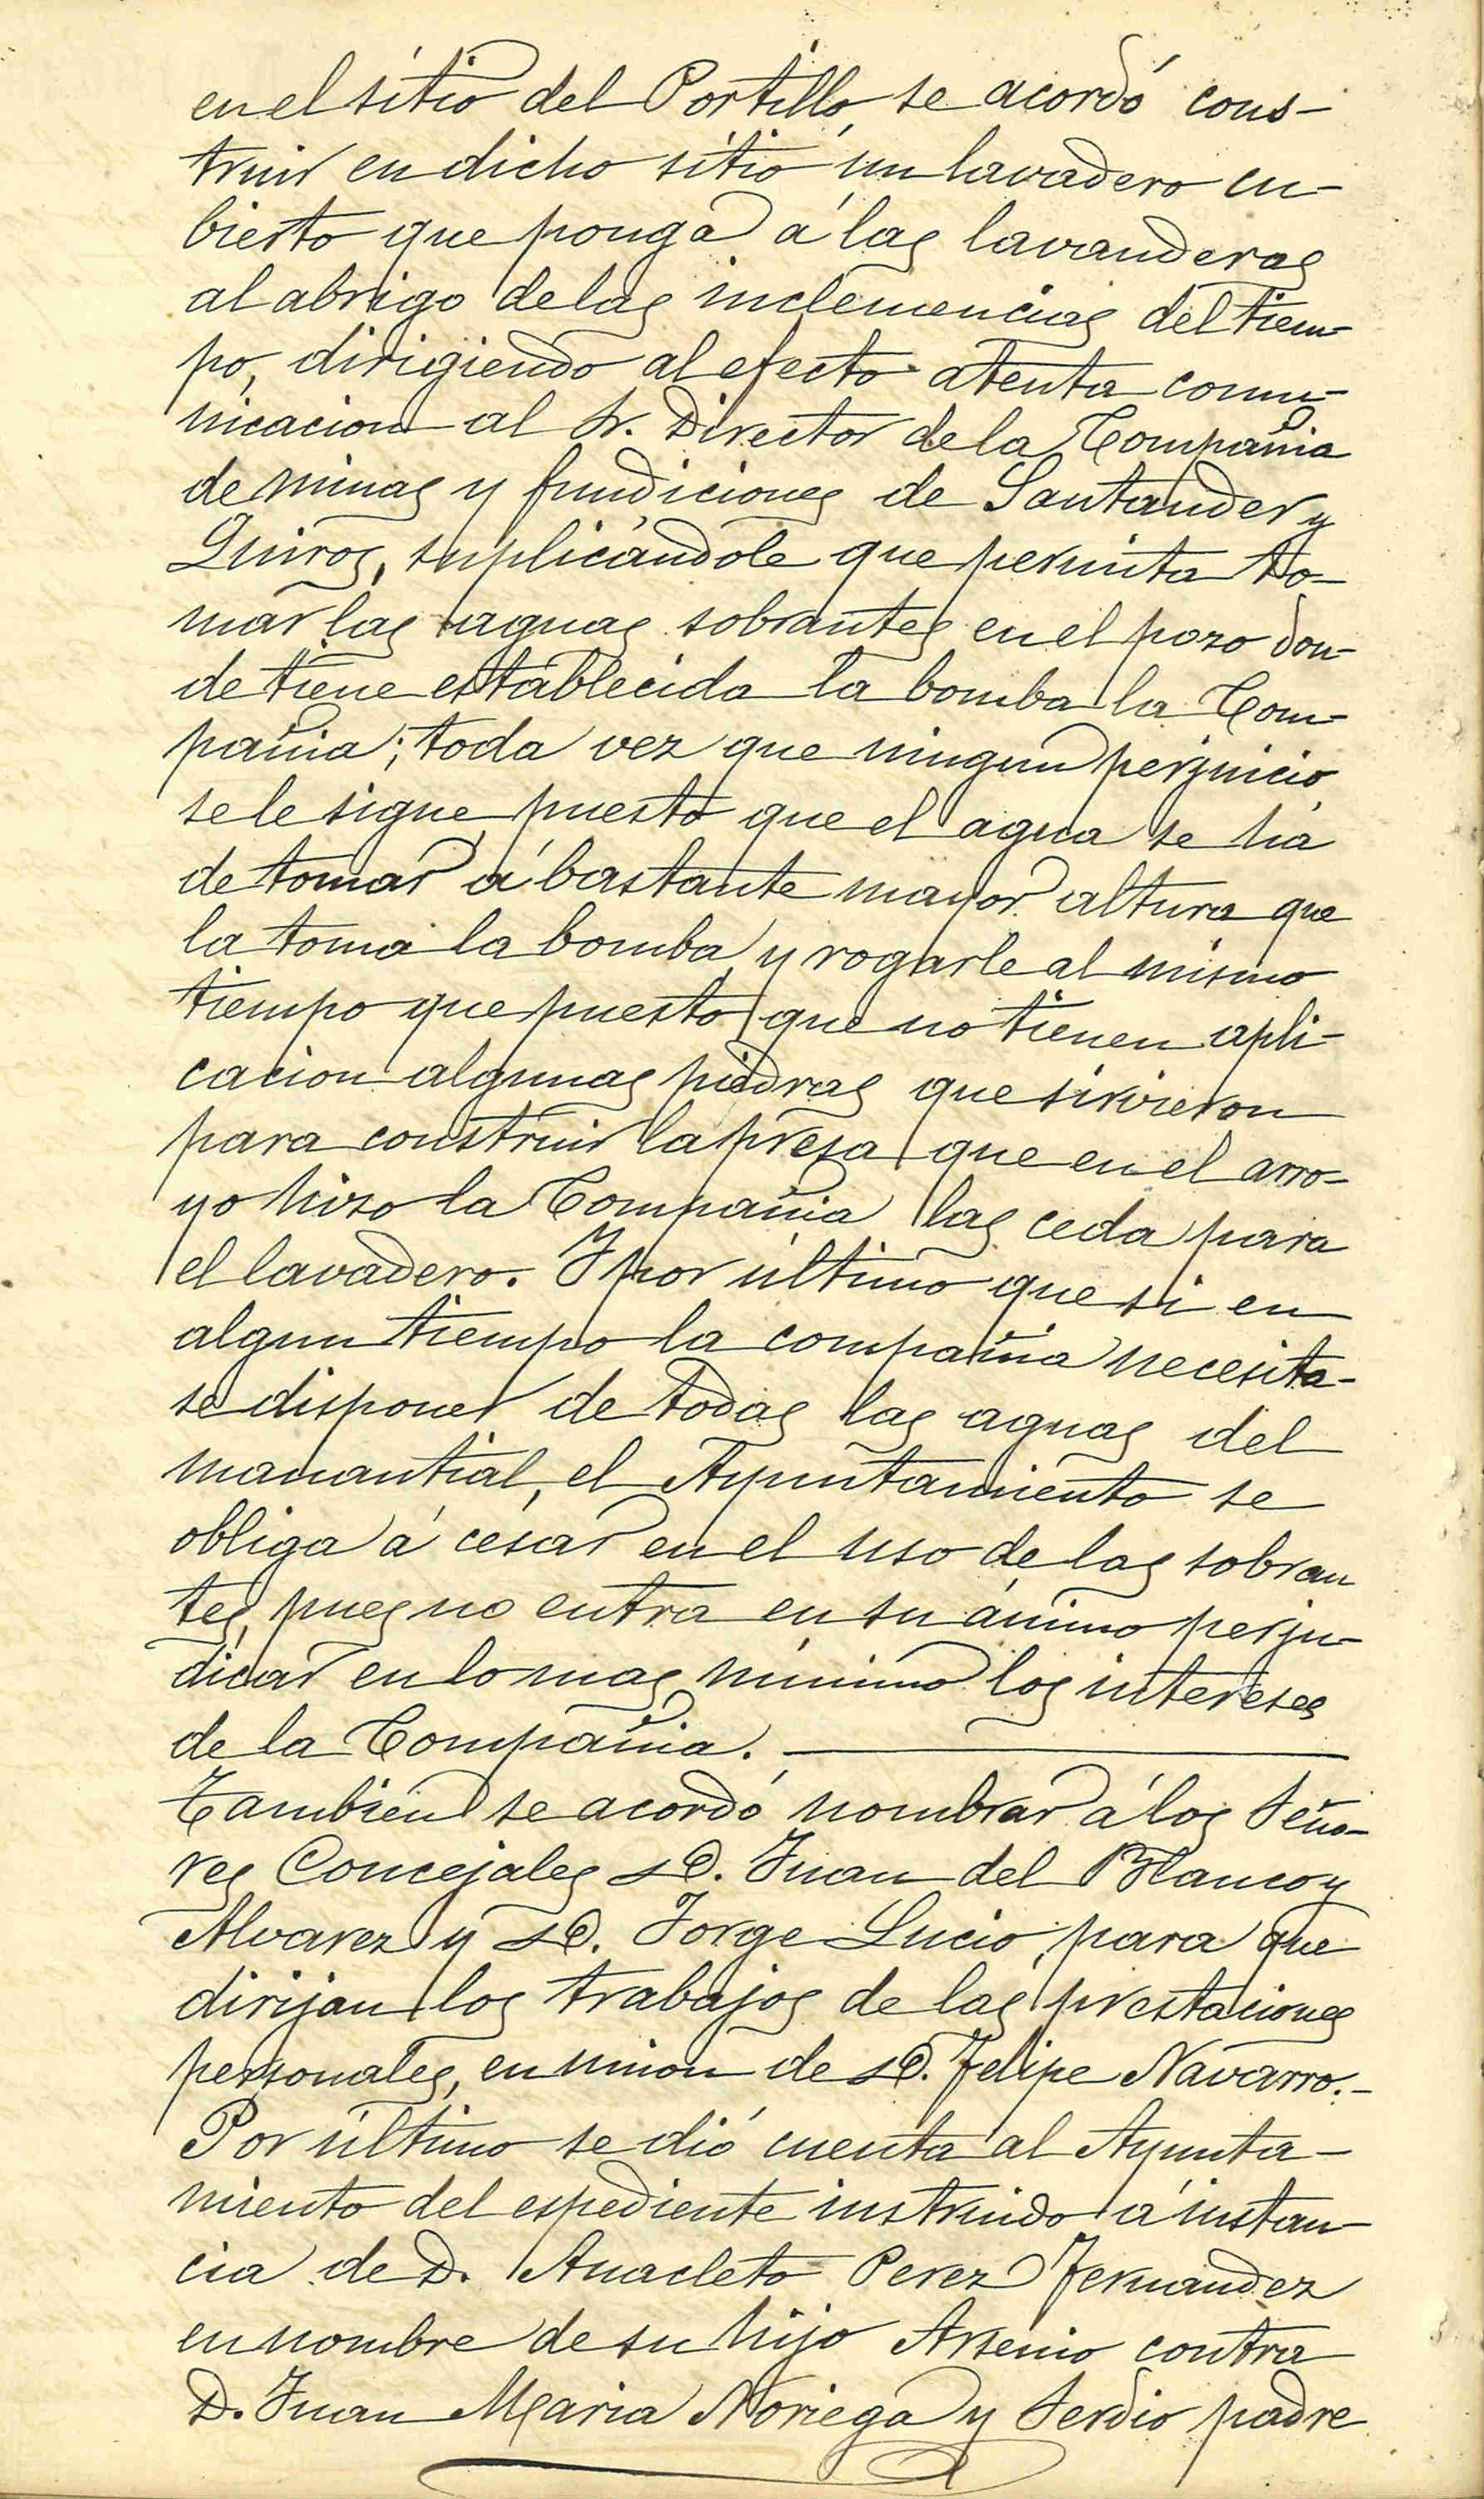 en el sitio del Portillo, se acordó cons-
truir en dicho sitio un lavadero cu-
bierto que ponga á las lavanderas
al abrigo de las inclemencias del tiem-
po, dirigiendo al efecto atenta comu-
nicacion al Sr. Director de la Compañia
de minas y fundiciones de Santander y
Quiros, suplicándole que permita to-
mar las aguas sobrantes en el pozo don-
de tiene establecida la bomba la Com-
pañia; toda vez que ningun perjuicio
se le sigue, puesto que el agua se há
de tomar á bastante mayor altura que
la toma la bomba, y rogarle al mismo
tiempo que puesto que no tienen apli-
cacion algunas piedras que sirvieron
para construir la presa que en el arro-
yo hizo la Compañia las ceda para
el lavadero. Y por último que si en
algun tiempo la compañia necesita-
se disponer de todas las aguas del
manantial, el Ayuntamiento se
obliga á cesar en el uso de las sobran
tes, pues no entra en su ánimo perju-
dicar en lo mas mínimo los intereses
de la Compañia.
Tambien se acordó nombrar á los Seño-
res Concejales D. Juan del Blanco y
Alvarez y D. Jorge Lucio, para que
dirijan los trabajos de las prestaciones
personales, en union de D. Felipe Navarro.-
Por último se dió cuenta al Ayunta-
miento del espediente instruido á instan-
cia de D. Anacleto Perez Fernandez
en nombre de su hijo Arsenio contra
D. Juan Maria Noriega y Serdio padre